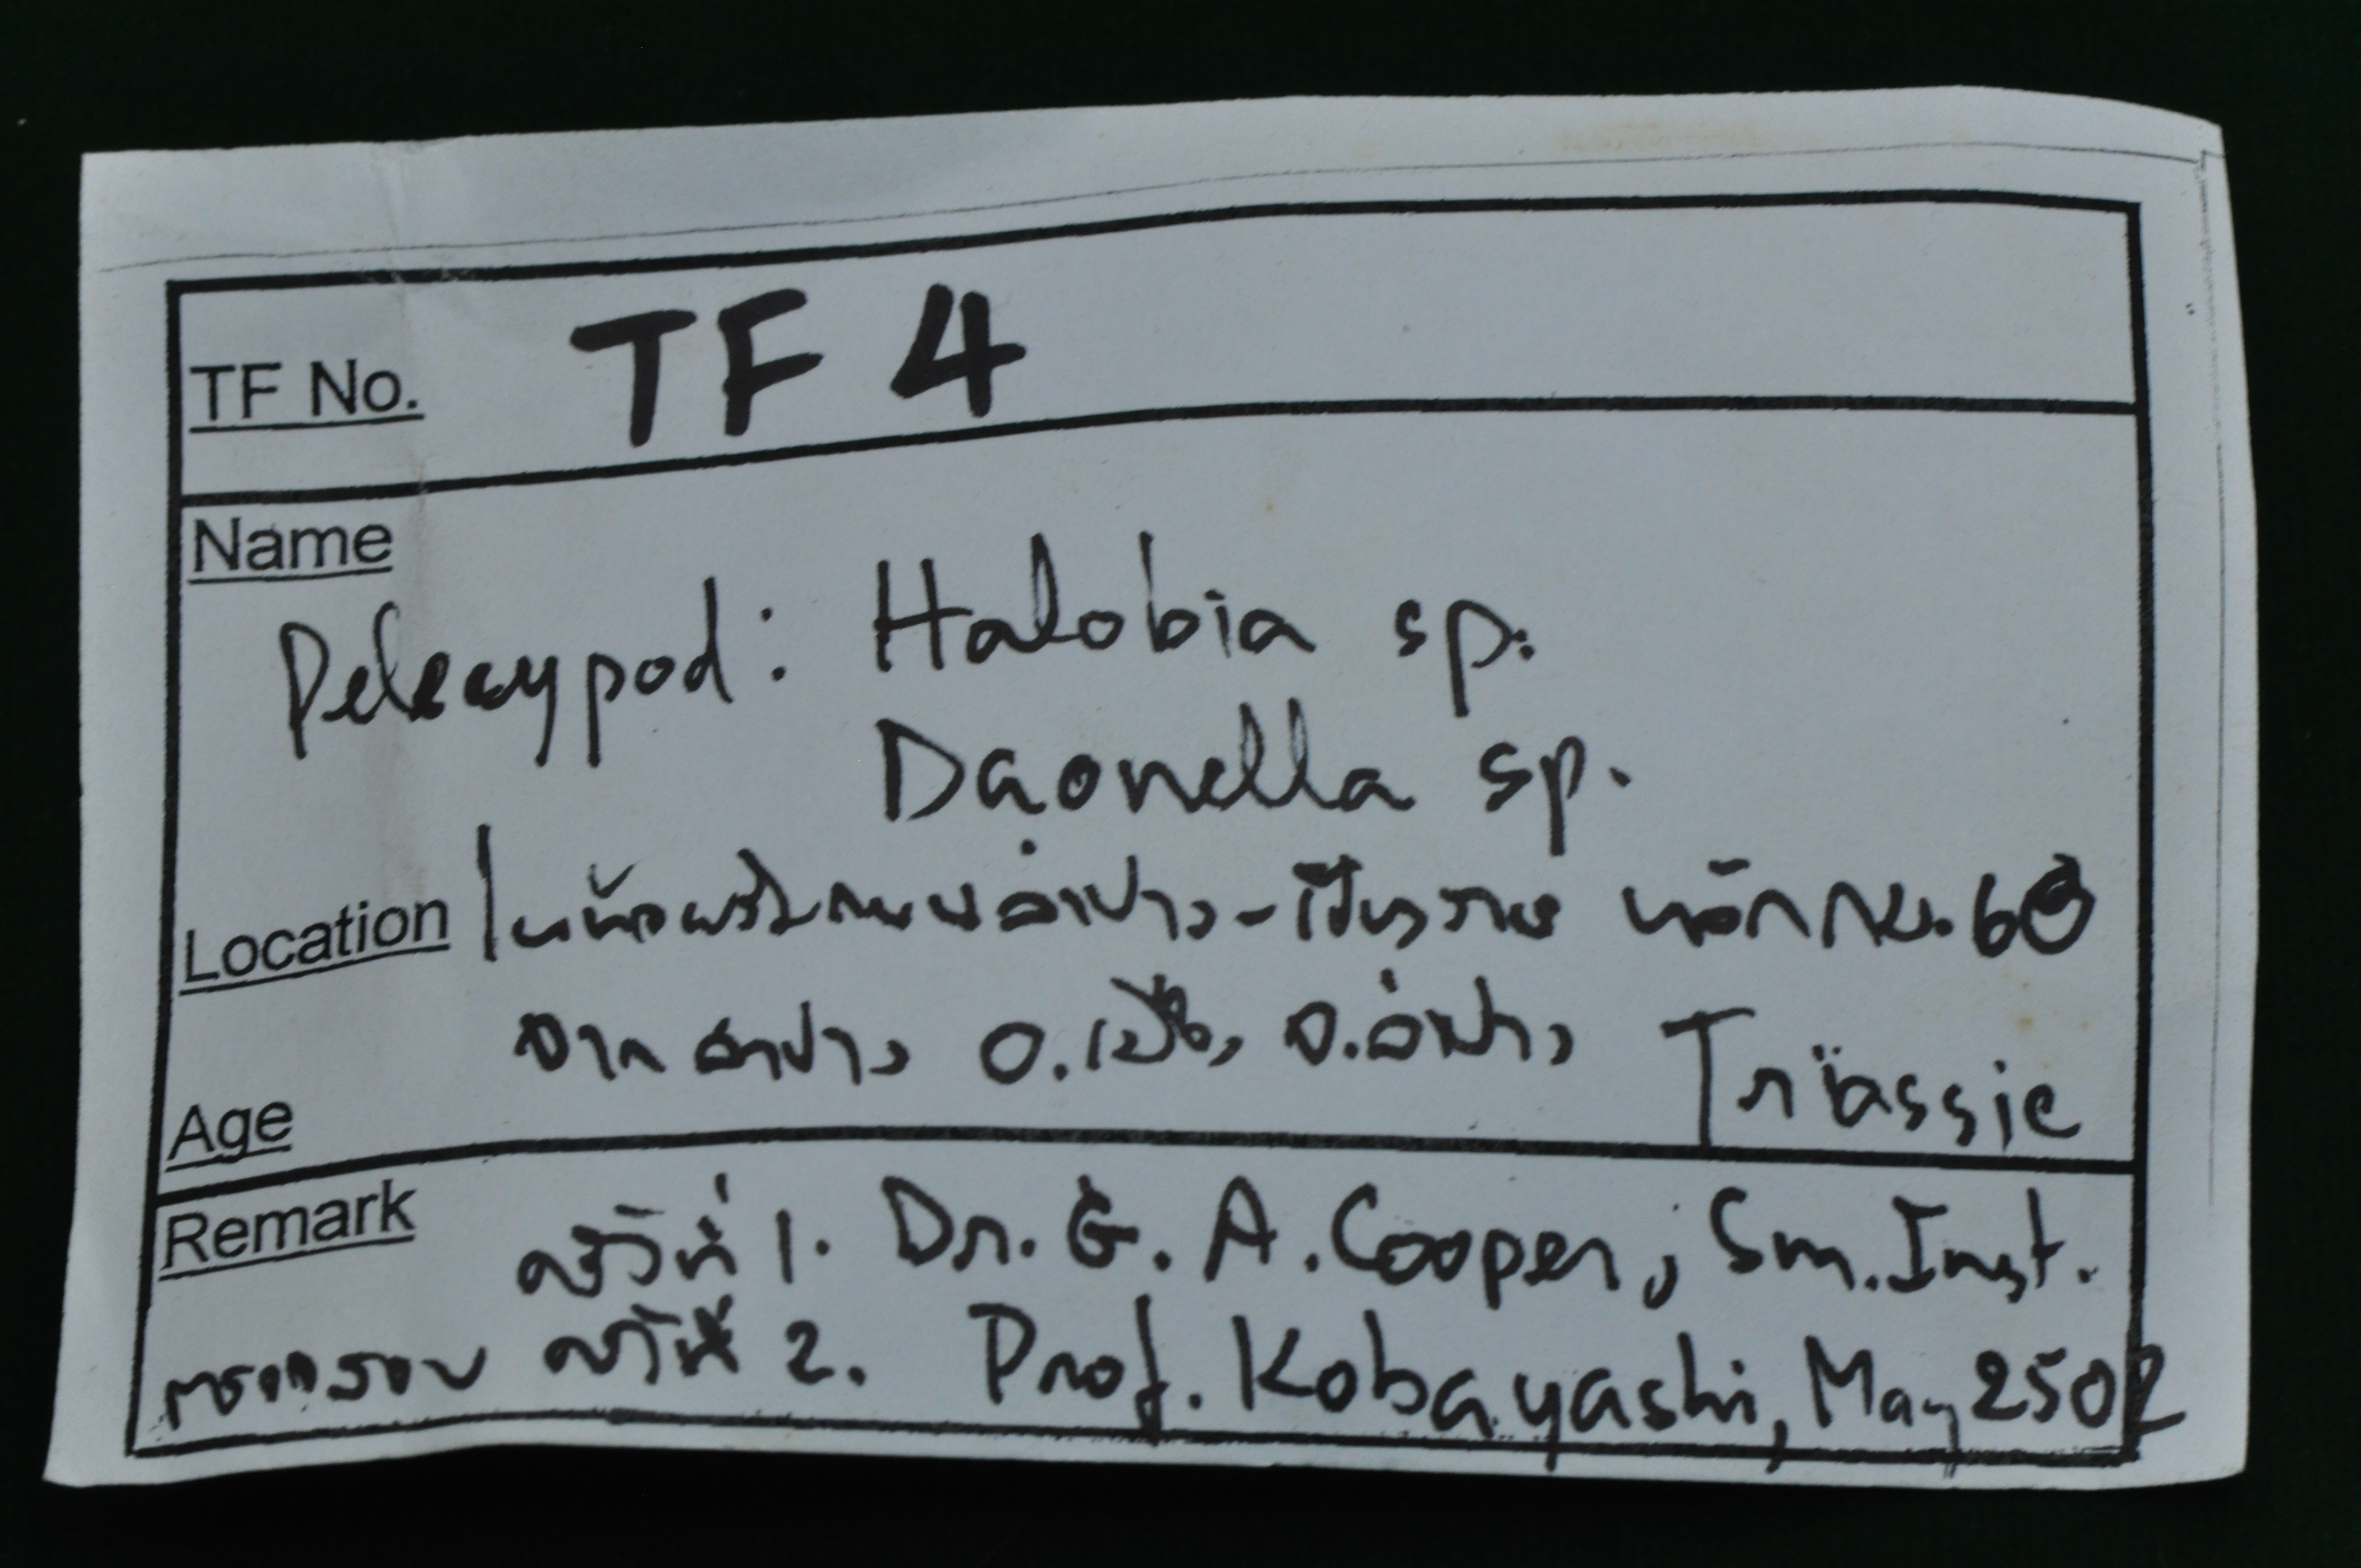 TF No. TF 4
Name
Pelecypod: Halobia sp.
Daonella sp.
Location ลำปาง-เชียงราย หลัก กม. 63
จาก ลำปาง อ.เมือง, จ.ลำปาง Triassic
Age
Remark ครั้งที่ 1. Dr. G. A. Cooper, Sm. Inst.
ตรวจสอบ ครั้งที่ 2. Prof. Kobayashi, May 2502